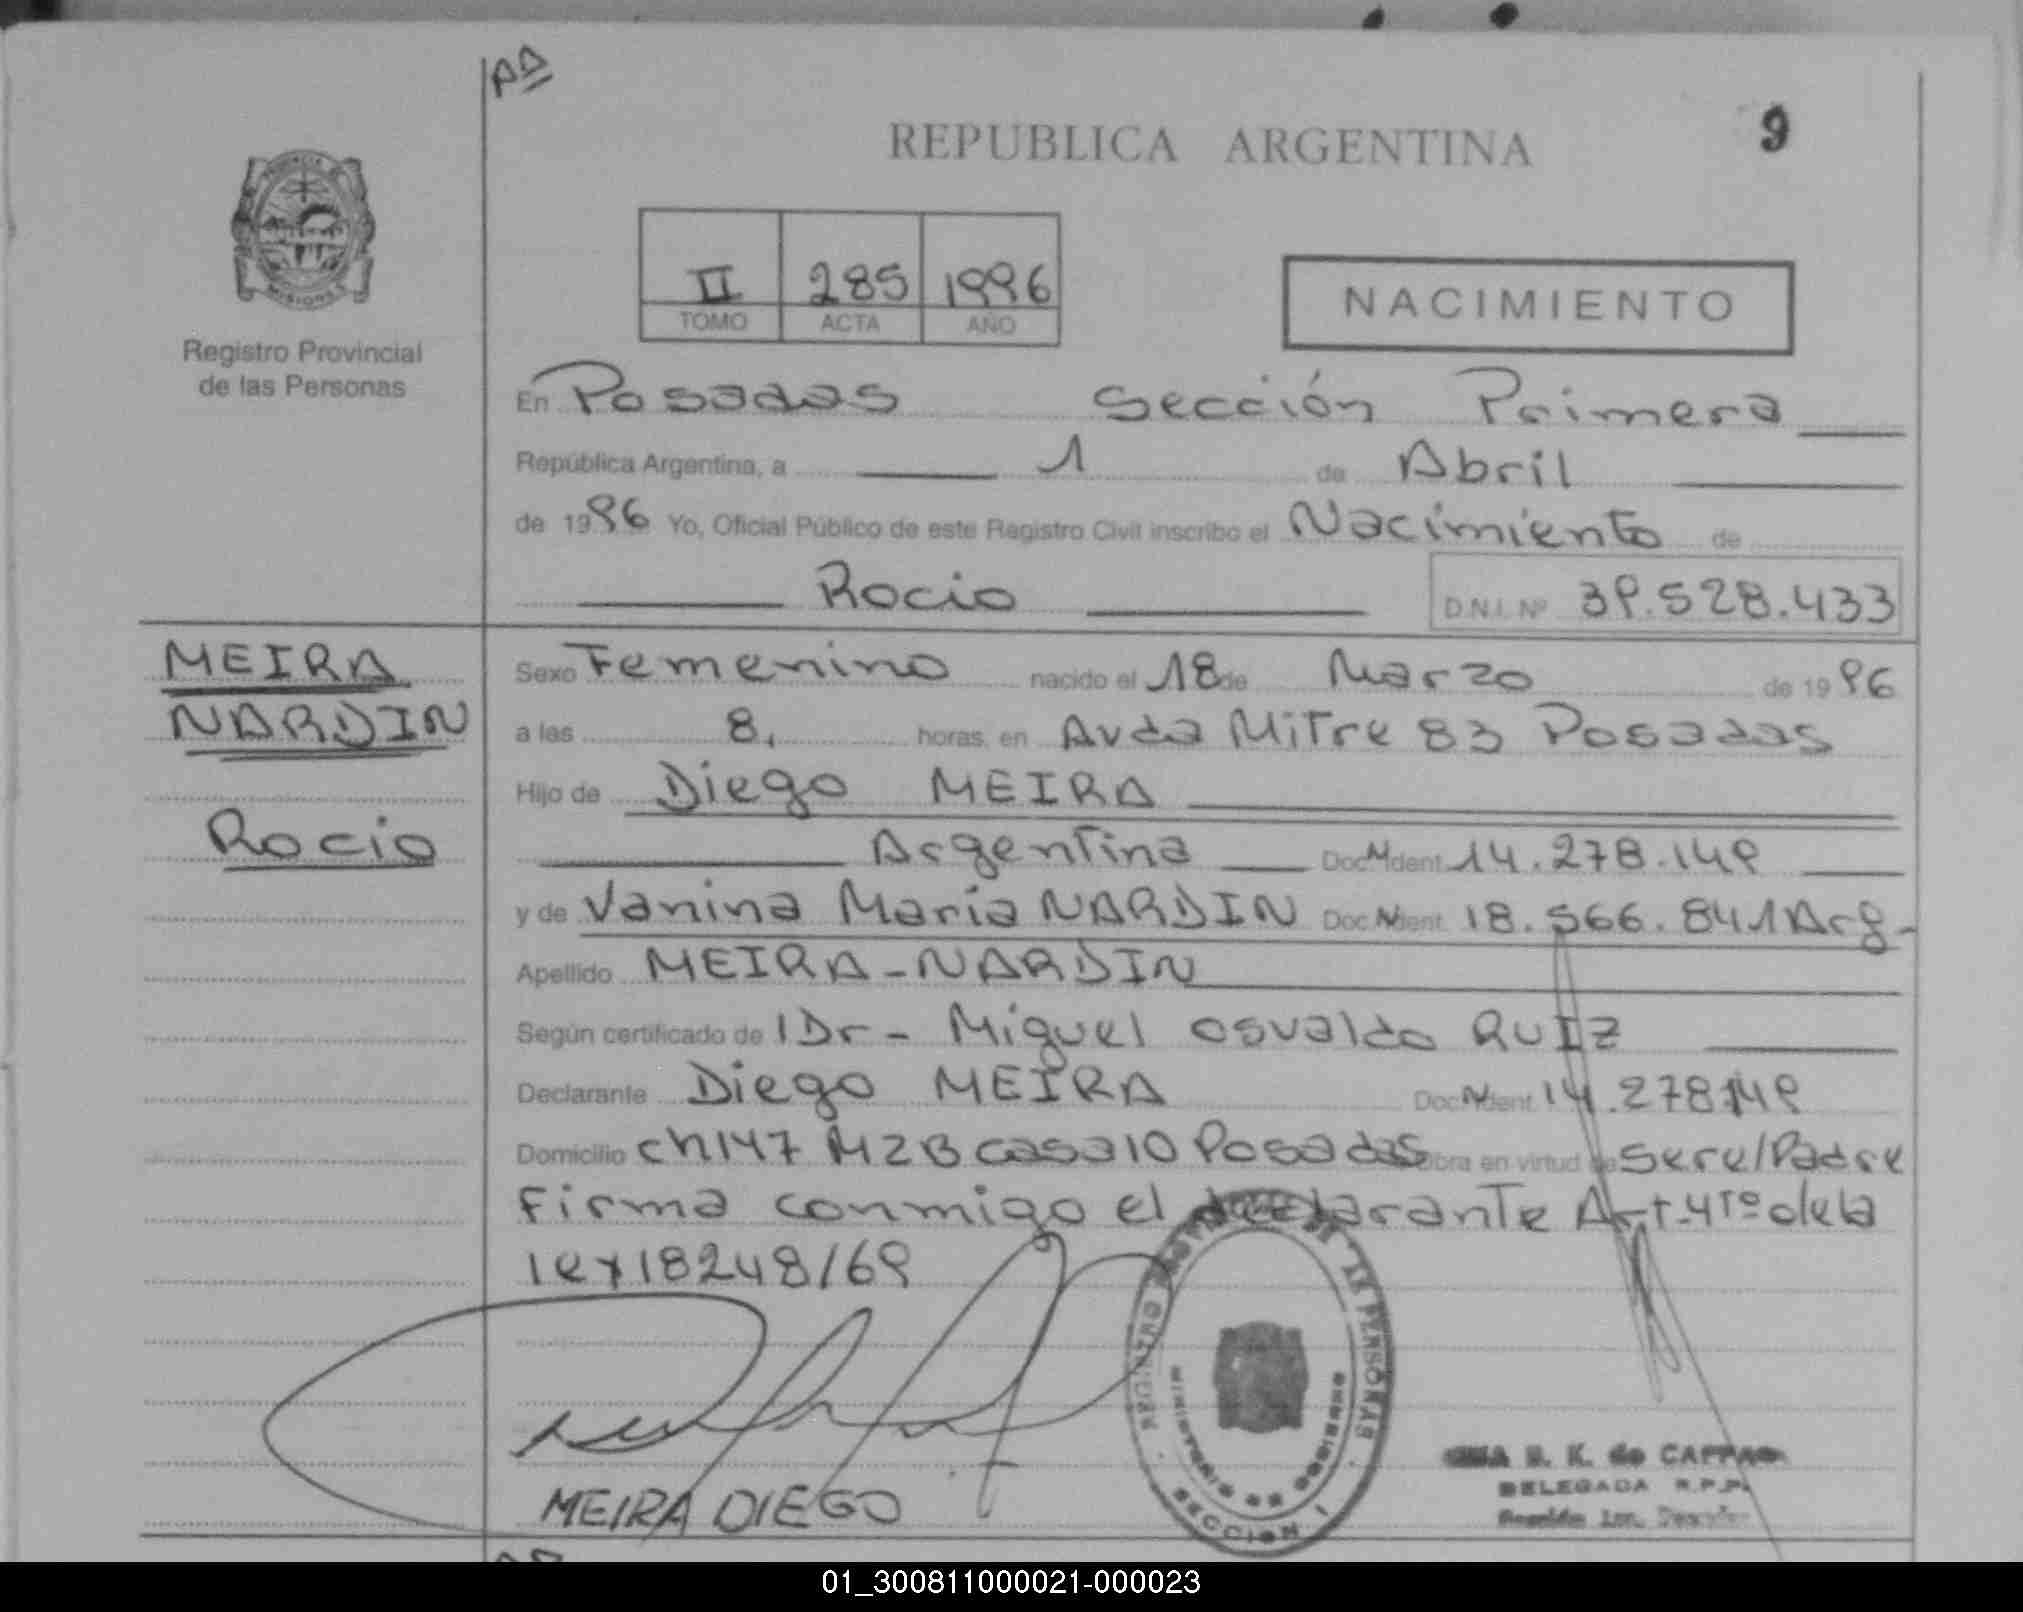 Aº
REPUBLICA ARGENTINA
9
PROVINCIA DE MISIONES
Registro Provincial
de las Personas
II 285 1996
TOMO ACTA AÑO
NACIMIENTO
En Posadas Sección Primera
República Argentina, a 1 de Abril
de 1996 Yo, Oficial Público de este Registro Civil inscribo el Nacimiento de
Rocio D.N.I. Nº 39.528.433
MEIRA
NARDIN
Rocio
Sexo Femenino nacido el 18 de Marzo de 1996
a las 8. horas, en Avda Mitre 83 Posadas
Hijo de Diego MEIRA
Argentina Doc. Ident. 14.278.149
y de Vanina Maria NARDIN Doc. Ident. 18.566.841 Arg-
Apellido MEIRA-NARDIN
Según certificado de lDr- Miguel Osvaldo RUIZ
Declarante Diego MEIRA Doc. Ident. 14.278.149
Domicilio ch147 MZB casa10 Posadas Obra en virtud de Sere/Padre
Firma conmigo el declarante Art-4to de la
ley 18248/69
MEIRA DIEGO
REGISTRO PROVINCIAL DE LAS PERSONAS
MINISTERIO DE GOBIERNO
SECCION I
B. K. de
DELEGADA R.P.P.
Sección 1ra.
01_300811000021-000023